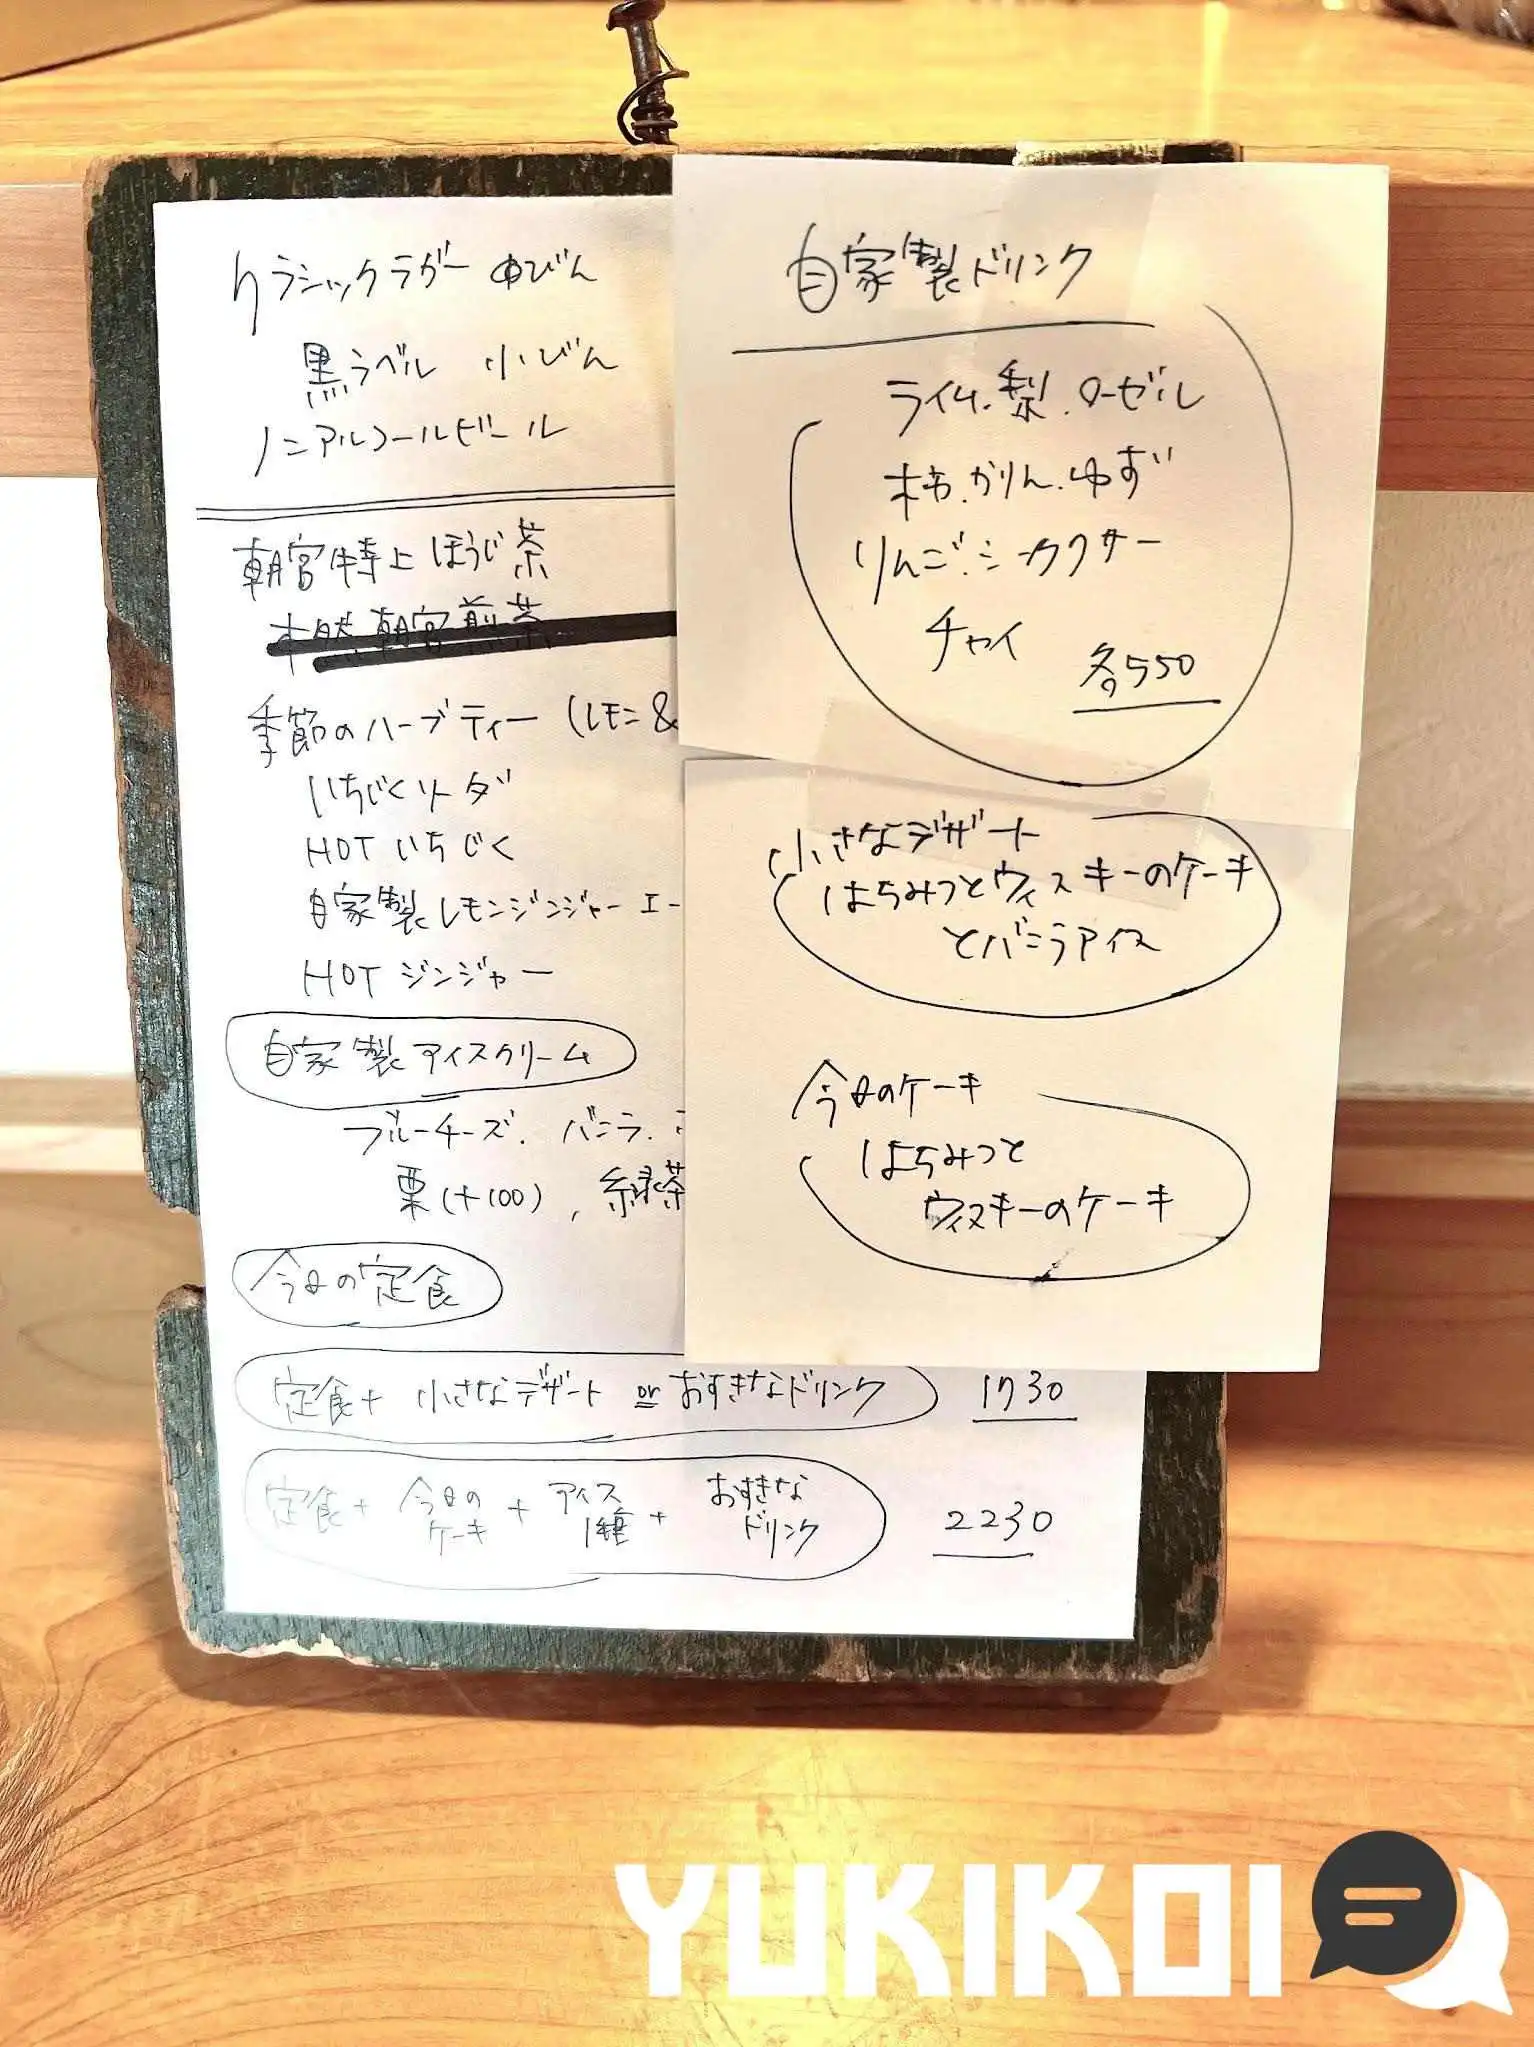 クラシックラガー 中びん
黒ラベル 小びん
ノンアルコールビール
朝宮特上ほうじ茶
朝宮煎茶
季節のハーブティー (レモン&
いちじくソーダ
HOT いちじく
自家製レモンジンジャーエー
HOT ジンジャー
自家製アイスクリーム
ブルーチーズ. バニラ.
栗(+100), 緑茶
今日の定食
定食+ 小さなデザート or おすきなドリンク 1730
定食+ 今日のケーキ + アイス1種 + おすきなドリンク 2230
自家製ドリンク
ライム.梨.ローゼル
柿.かりん.ゆず
りんご.シークワサー
チャイ 各550
小さなデザート
はちみつとウィスキーのケーキ
とバニラアイス
今日のケーキ
はちみつと
ウィスキーのケーキ
YUKIKOI